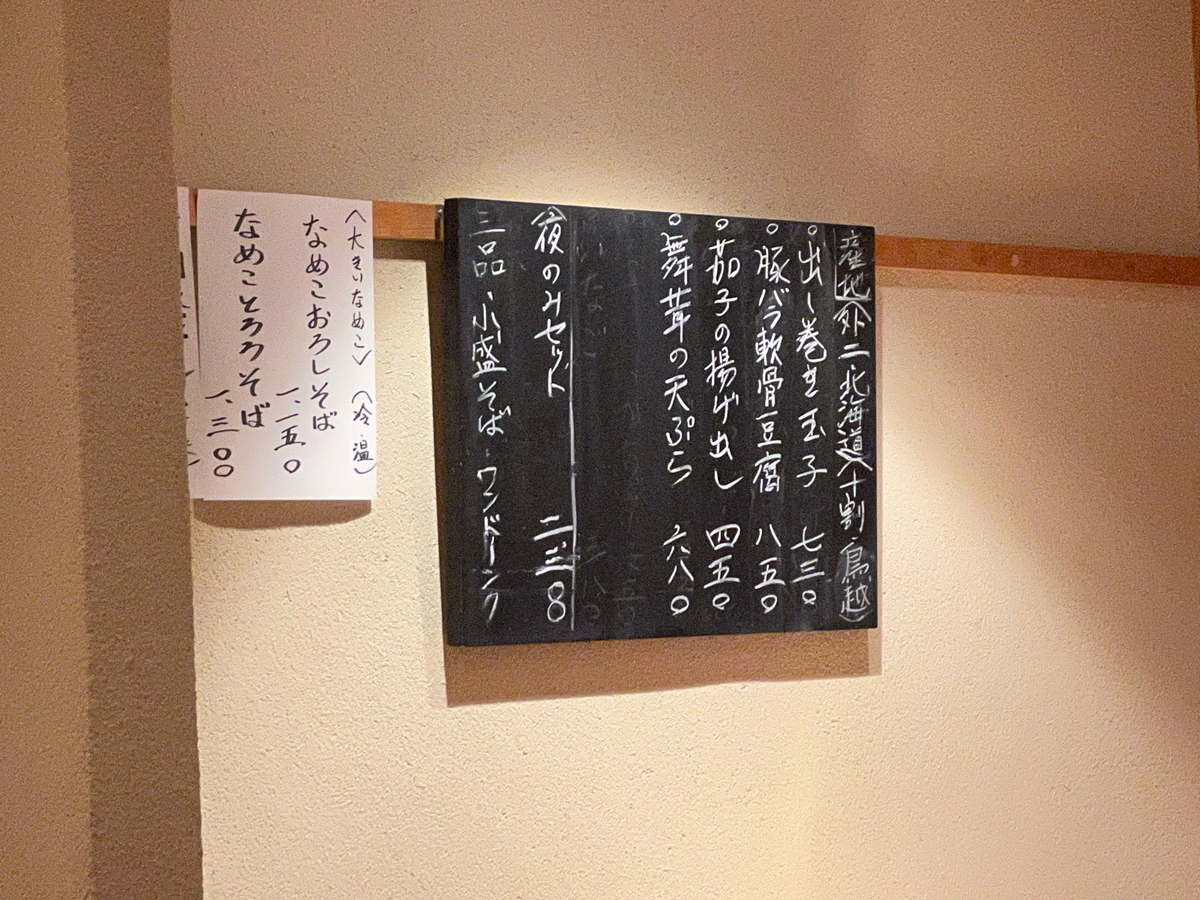 産地(外二・北海道)(十割・鳥越)
○出し巻き玉子 七三〇
○豚バラ軟骨豆腐 八五〇
○茄子の揚げ出し 四五〇
○舞茸の天ぷら 六八〇
(夜のみセット 二、三三〇
三品・小盛そば・ワンドリンク
〈大きいなめこ〉(冷・温)
なめこおろしそば
一、一五〇
なめことろろそば
一、三〇〇